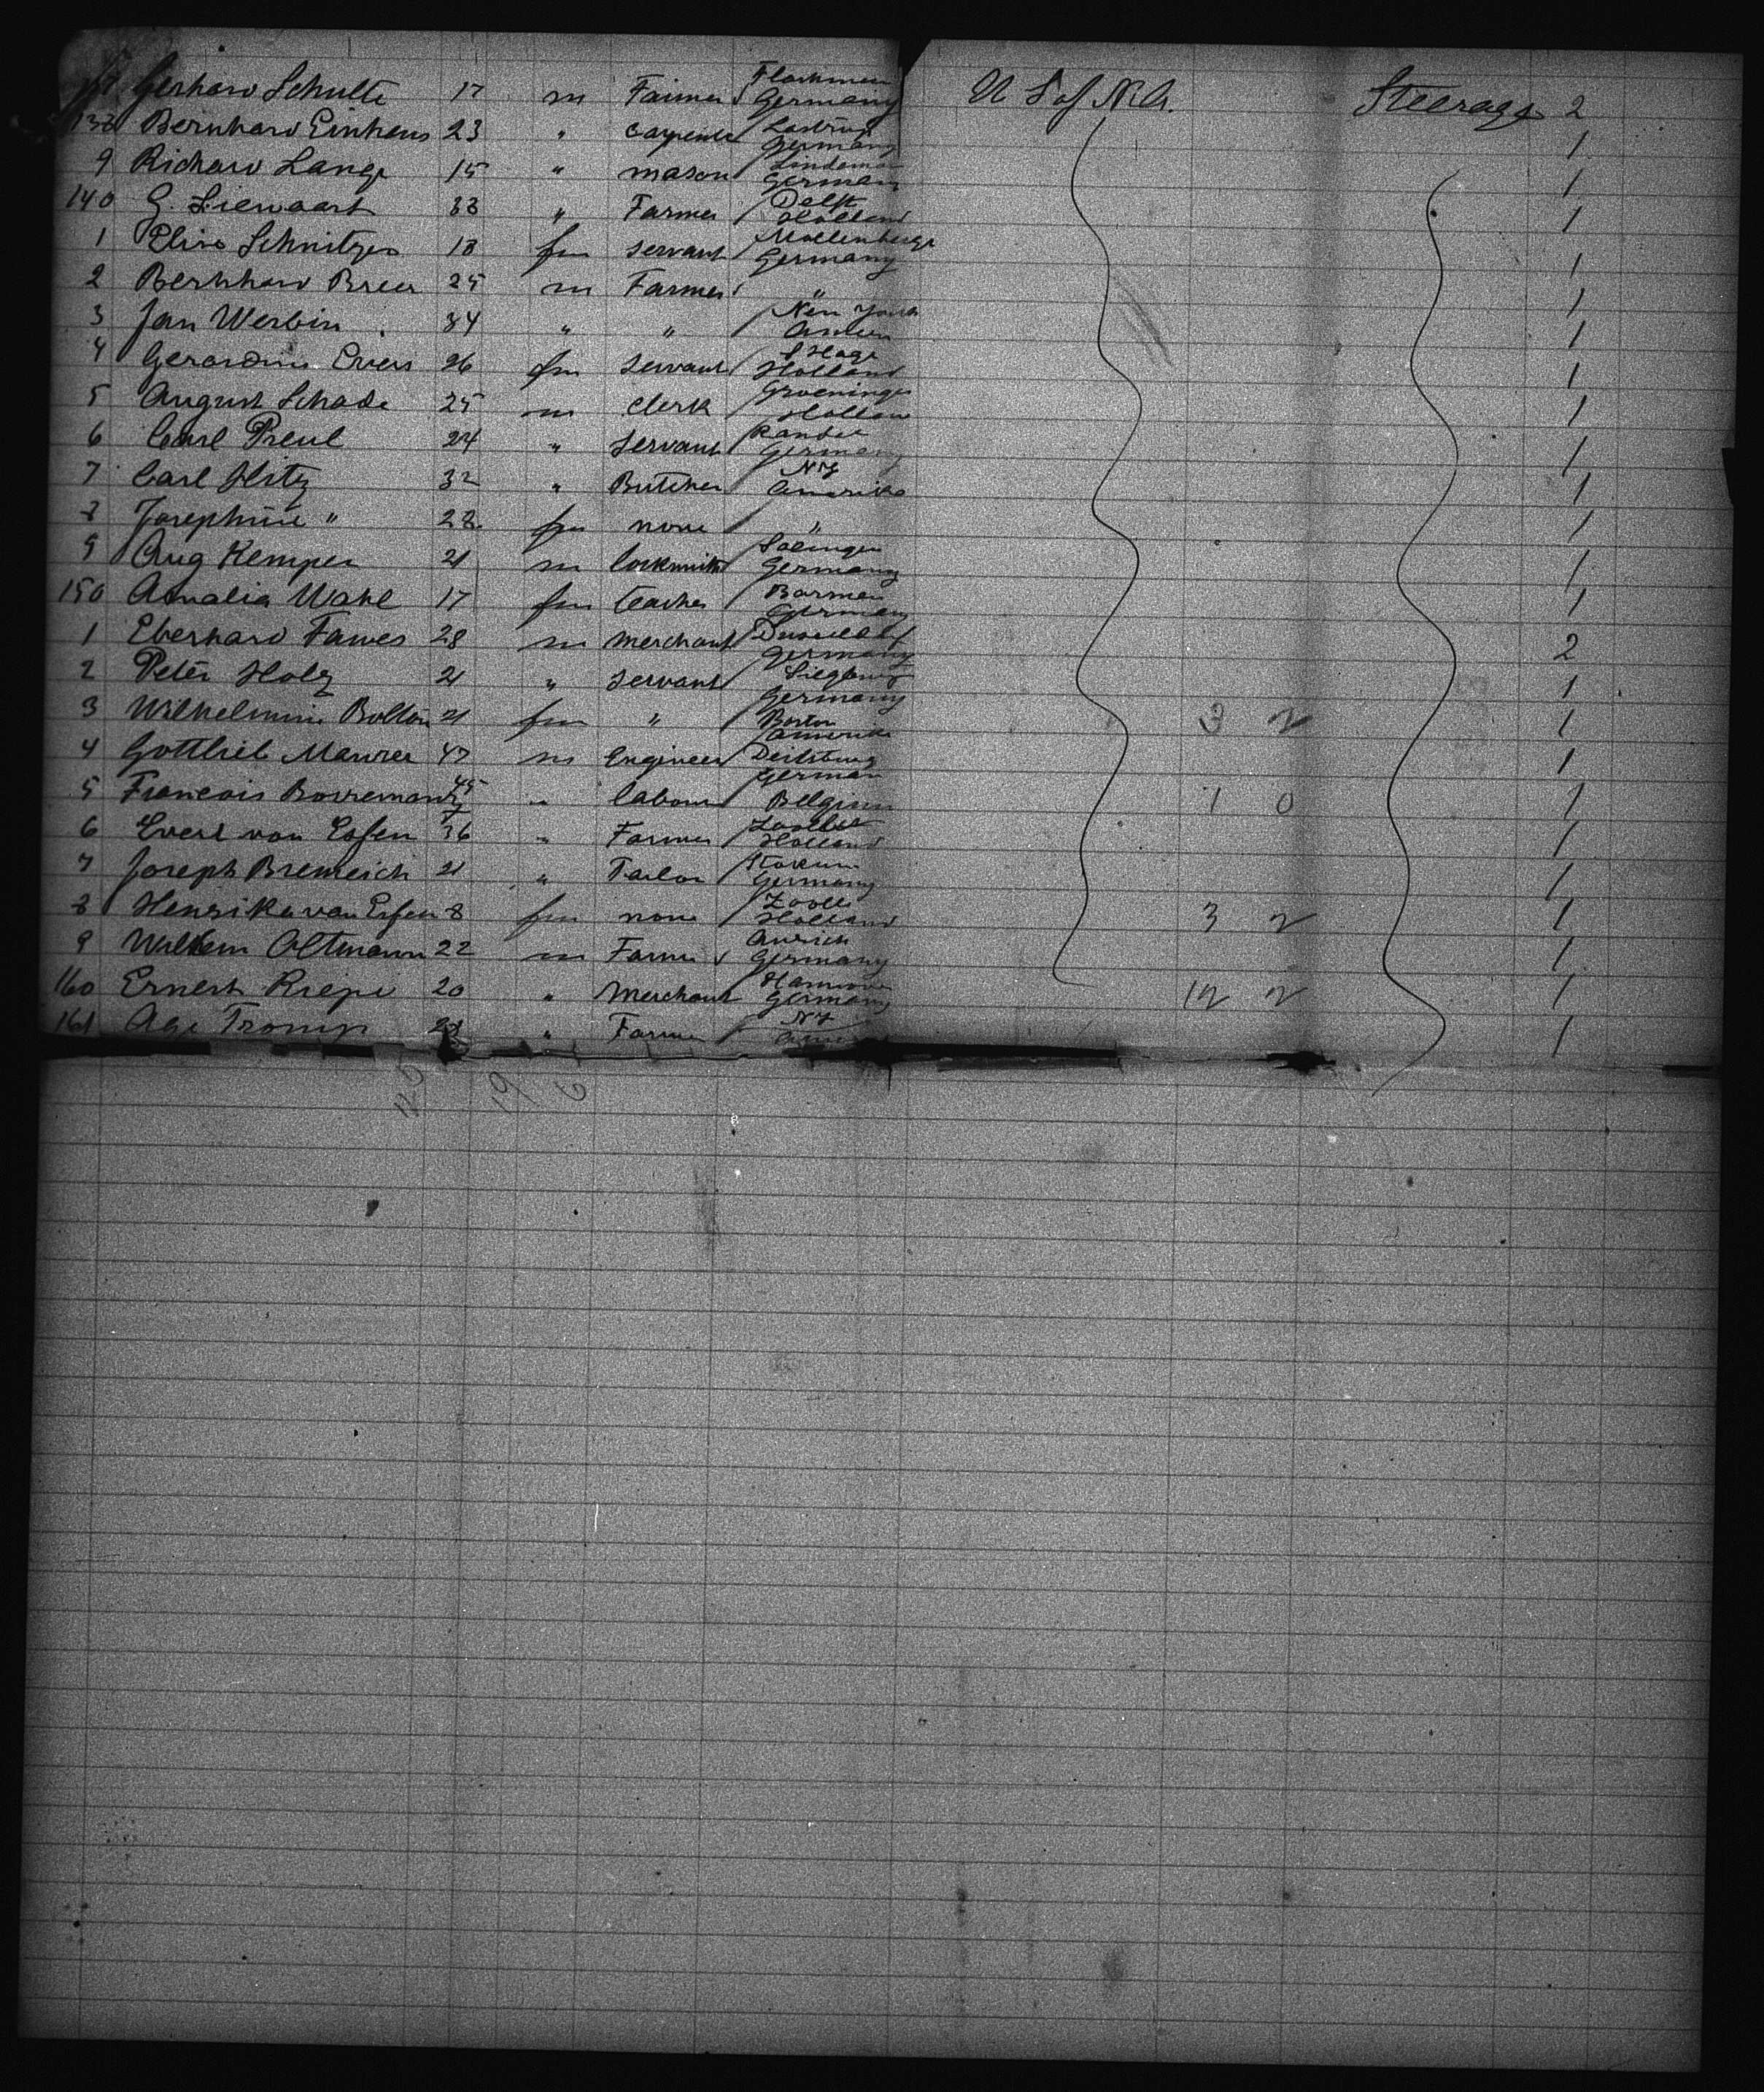 137 Gerhard Schulte 17 m Farmer Germany U S of N.A. Steerage 2
138 Bernhard Einhaus 23 " Carpenter Lastrup Germany 1
9 Richard Lange 15 " mason Germany 1
140 G. Liewaart 33 " Farmer Delft Holland 1
1 Elise Schnitger 18 fm servant Germany 1
2 Bernhard Breer 25 m Farmer " 1
3 Jan Werbin 34 " " New York 1
4 Gerardina Evers 26 fm servant S Hage Holland 1
5 August Schade 25 m clerk Groeningen Holland 1
6 Carl Preul 24 " servant Germany 1
7 Carl Hitz 32 " Butcher NY Amerika 1
8 Josephine " 28 fm none " 1
9 Aug Kemper 21 m locksmith Solingen Germany 1
150 Amalia Wahl 17 fm teacher Barmen Germany 1
1 Eberhard Fawes 28 m merchant Germany 2
2 Peter Holz 21 " servant Siegburg Germany 1
3 Wilhelmine Bolton 21 fm " Boston Amerika 3 2 1
4 Gottlieb Maurer 47 m Engineer German 1
5 Francois 45 " labour Belgium 1 0 1
6 Evert van Essen 36 " Farmer Holland 1
7 Joseph Bremeich 21 " Tailor Germany 1
8 Henrika van Essen 8 fm none Zwolle Holland 3 2 1
9 Wilhem Altmann 22 m Farmer Aurich Germany 1
160 Ernest Riepe 20 " Merchant Hannover Germany 12 2 1
161 Age Tromp " Farmer NY 1
19 6